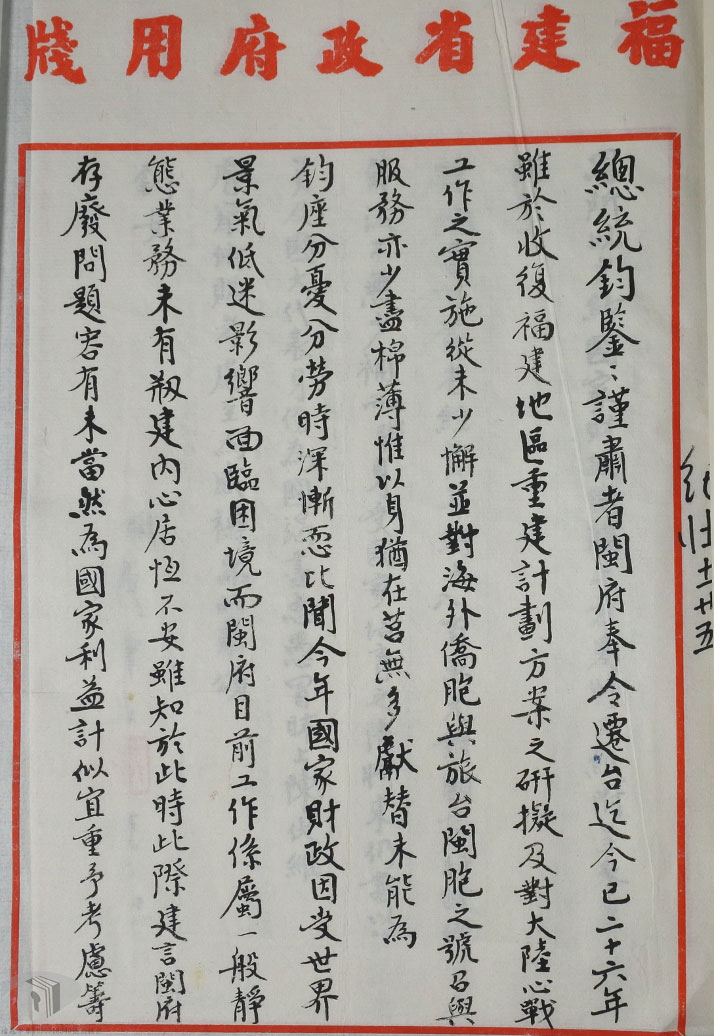 福建省政府用牋
總統鈞鑒：謹肅者閩府奉令遷台迄今已二十六年
雖於收復福建地區重建計劃方案之研擬及對大陸心戰
工作之實施從未少懈並對海外僑胞與旅台閩胞之號召與
服務亦少盡棉薄惟以身猶在莒無多獻替未能為
鈞座分憂分勞時深慚恧比聞今年國家財政因受世界
景氣低迷影響面臨困境而閩府目前工作係屬一般靜
態業務未有剙建內心居恆不安雖知於此時此際建言閩府
存廢問題容有未當然為國家利益計似宜重予考慮籌